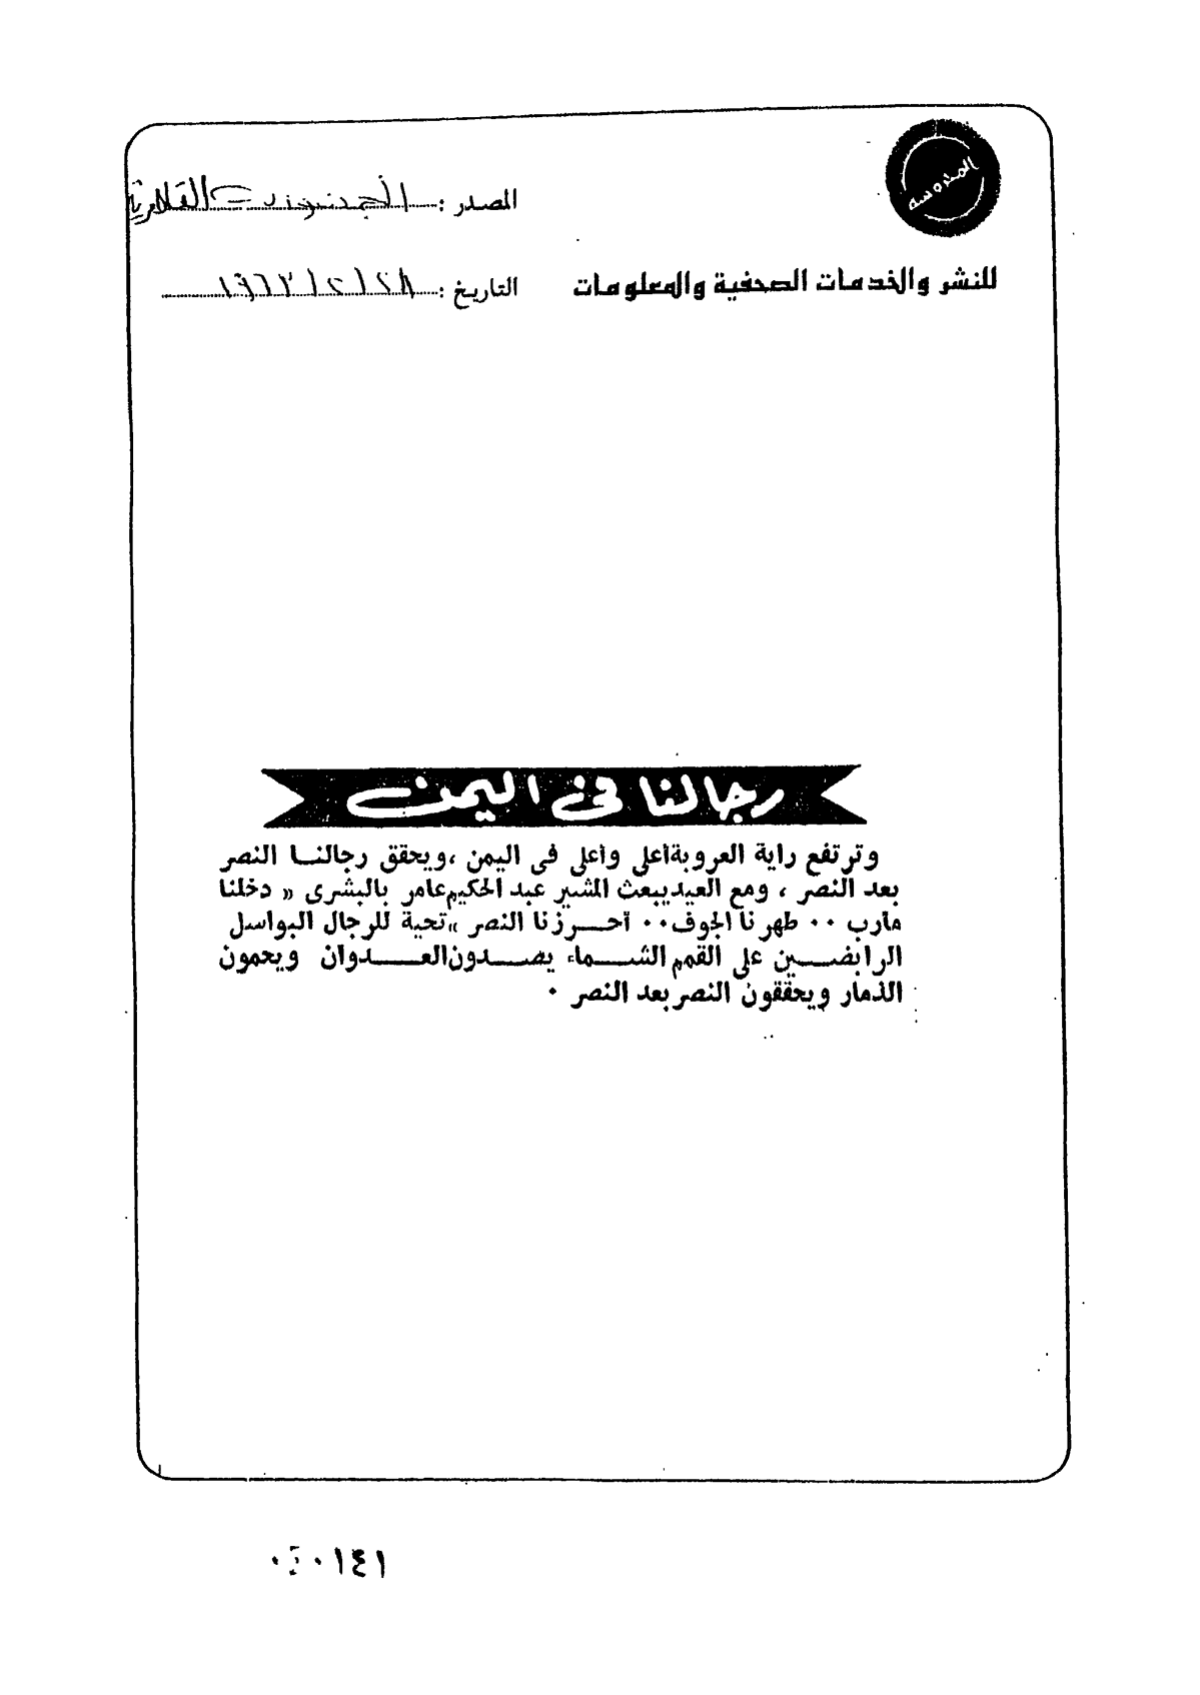 المحروسة
المصدر : الجمهورية القاهرية
للنشر والخدمات الصحفية والمعلومات
التاريخ : ١٩٦٣/٢/٢٨
رجالنا فى اليمن
وترتفع راية العروبة أعلى وأعلى فى اليمن ،ويحقق رجالنا النصر
بعد النصر ، ومع العيد يبعث المشير عبد الحكيم عامر بالبشرى « دخلنا
مأرب ٠٠ طهرنا الجوف ٠٠ أحرزنا النصر »تحية للرجال البواسل
الرابضين على القمم الشماء يصدون العدوان ويحمون
الذمار ويحققون النصر بعد النصر ٠